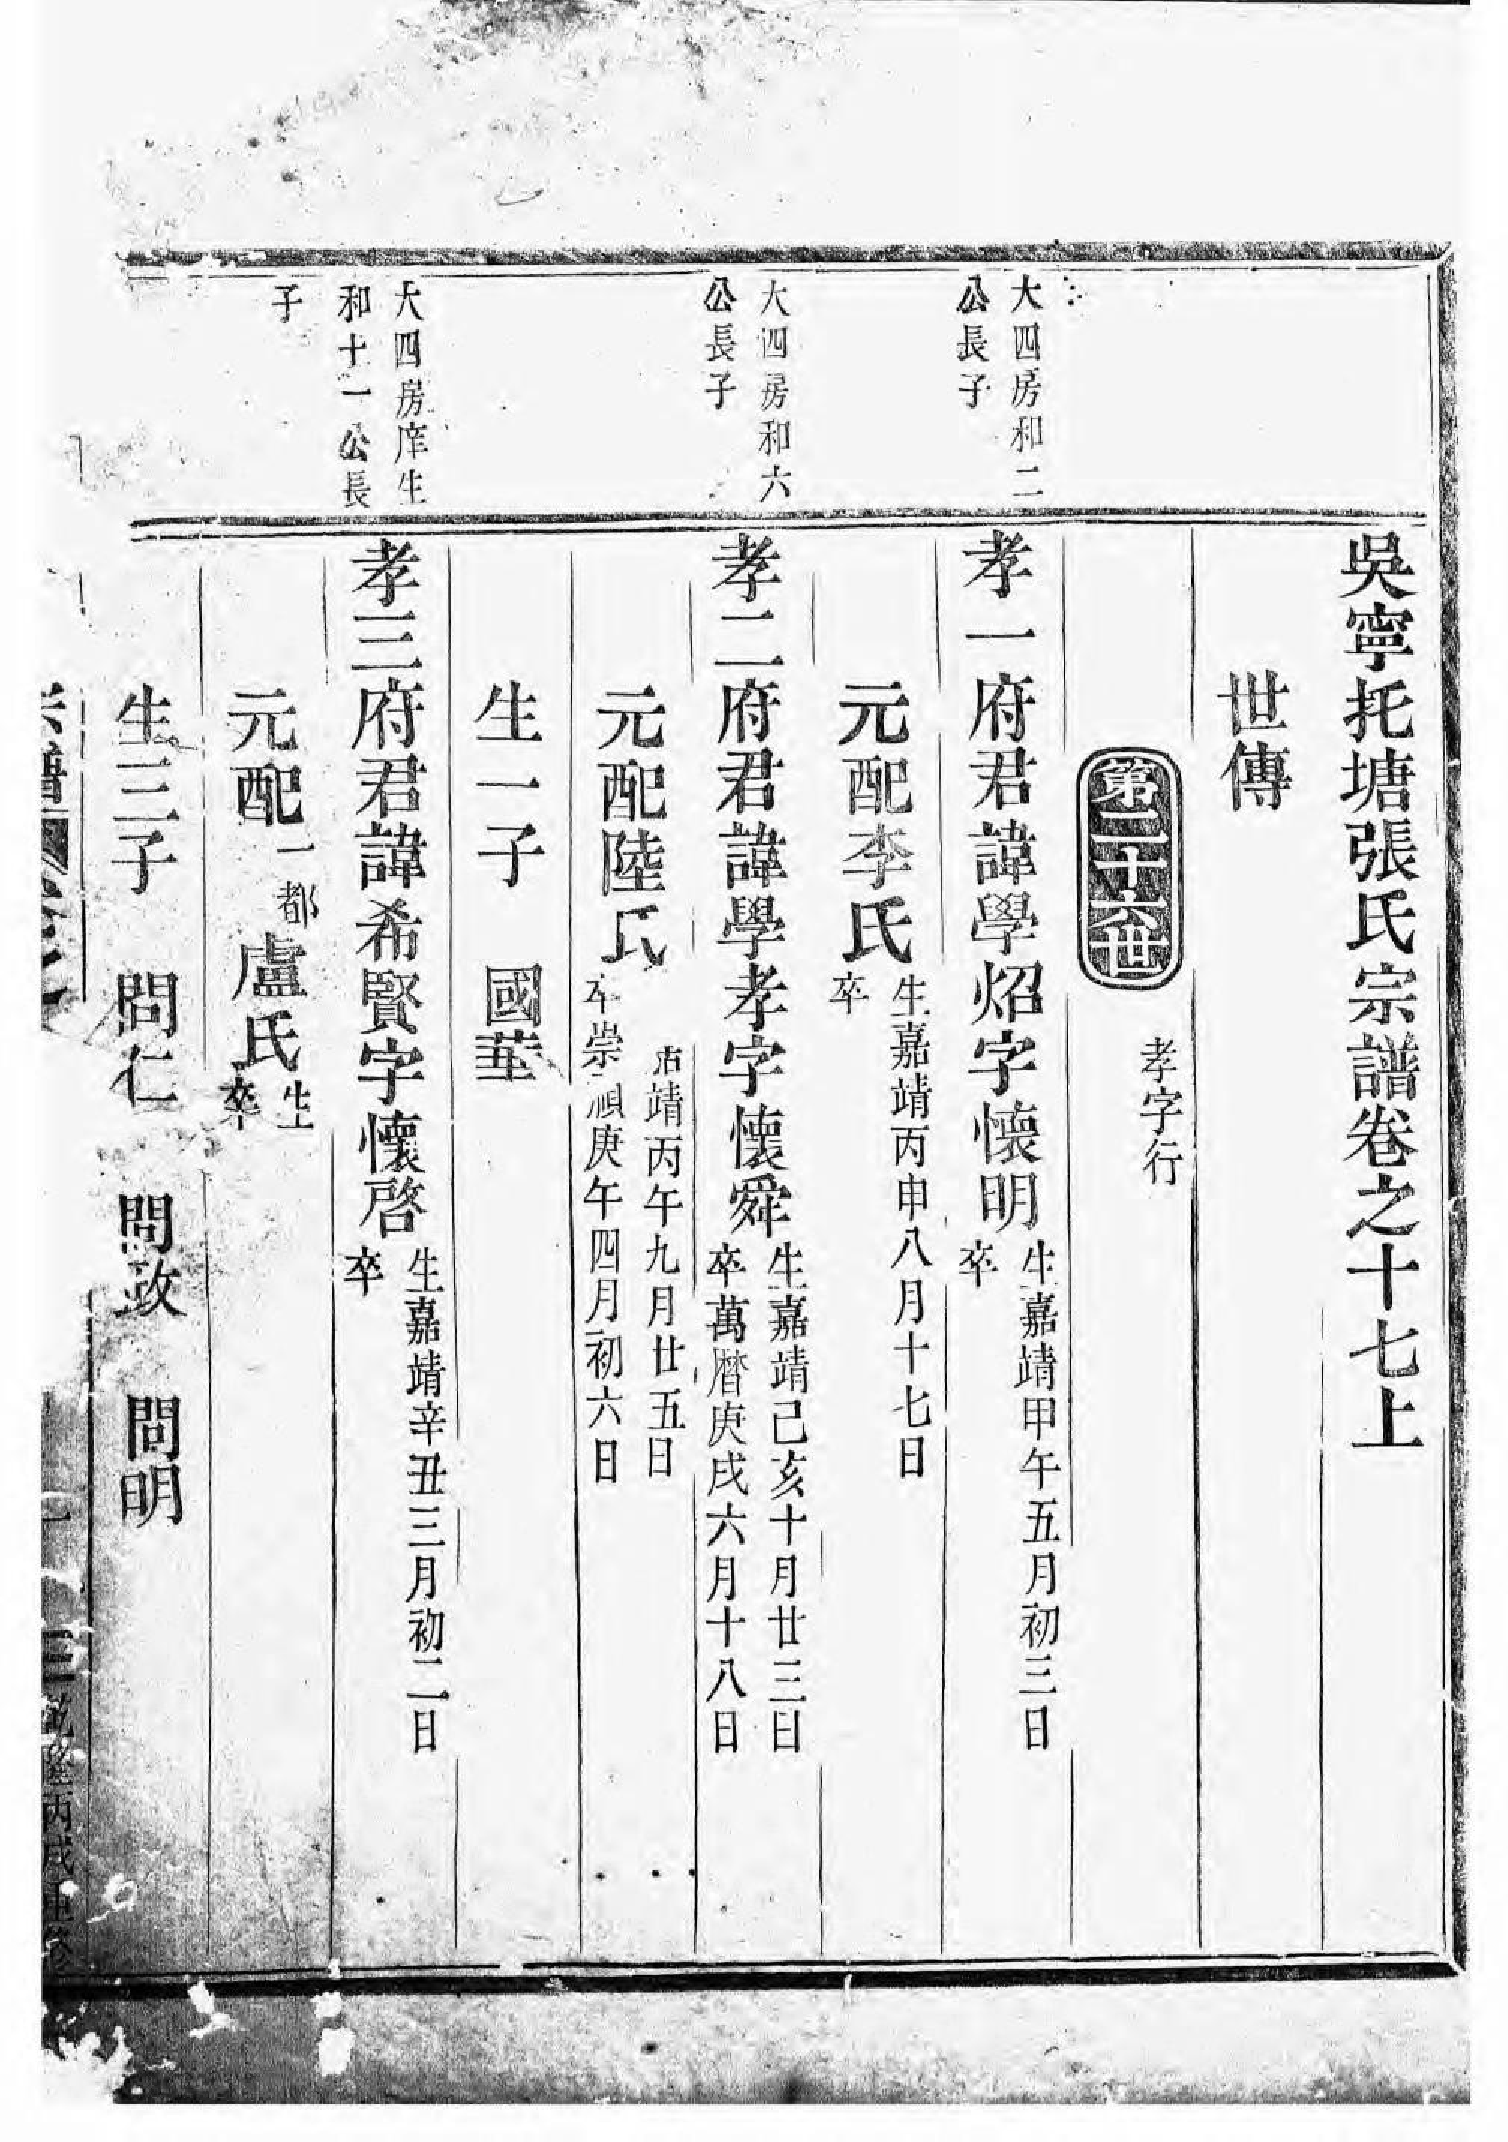 吳寧托塘張氏宗譜卷之十七上
世傳
第二十六世
孝字行
大四房和二
公長子
孝一府君諱學炤字懷明
生嘉靖甲午五月初三日
卒
元配李氏
生嘉靖丙申八月十七日
卒
大四房和六
公長子
孝二府君諱學孝字懷舜
生嘉靖己亥十月廿三日
卒萬曆庚戌六月十八日
元配陸氏
靖丙午九月廿五日
卒崇禎庚午四月初六日
生一子 國華
大四房庠生
和十一公長
子
孝三府君諱希賢字懷啓
生嘉靖辛丑三月初二日
卒
元配一都盧氏
生
卒
生三子 問仁 問政 問明
譜
丙戌重修